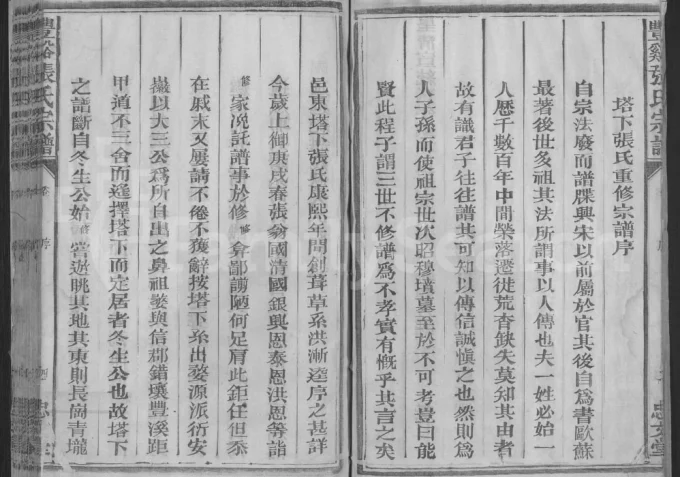 塔下張氏重修宗譜序
自宗法廢而譜牒興宋以前屬於官其後自爲書歐蘇
最著後世多祖其法所謂事以人傳也夫一姓必始一
人歷千數百年中間榮落遷徙荒杳缺失莫知其由者
故有識君子往往譜其可知以傳信誠愼之也然則爲
人子孫而使祖宗世次昭穆墳墓至於不可考豈曰能
賢此程子謂三世不修譜爲不孝實有慨乎其言之矣
邑東塔下張氏康熙年間創葺草系洪漸逵序之甚詳
今歲上御庚戌春張翁國清國銀興恩泰恩洪恩等詣
修家浼託譜事於修修弇鄙謭陋何足肩此鉅任但忝
在戚末又屢請不倦不獲辭按塔下系出婺源派衍安
巖以大三公爲所自出之鼻祖縈與信郡錯壤豐溪距
甲道不三舍而遙擇塔下而定居者冬生公也故塔下
之譜斷自冬生公始修嘗遊眺其地其東則長崗青壠
豐谿張氏宗譜
卷
序
忠
堂
豐谿張氏宗譜
序
忠
堂